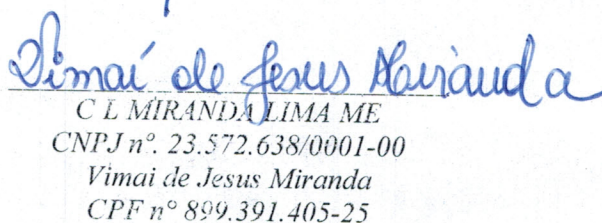 Vimaí de Jesus Miranda
C L MIRANDA LIMA ME
CNPJ nº. 23.572.638/0001-00
Vimai de Jesus Miranda
CPF nº 899.391.405-25